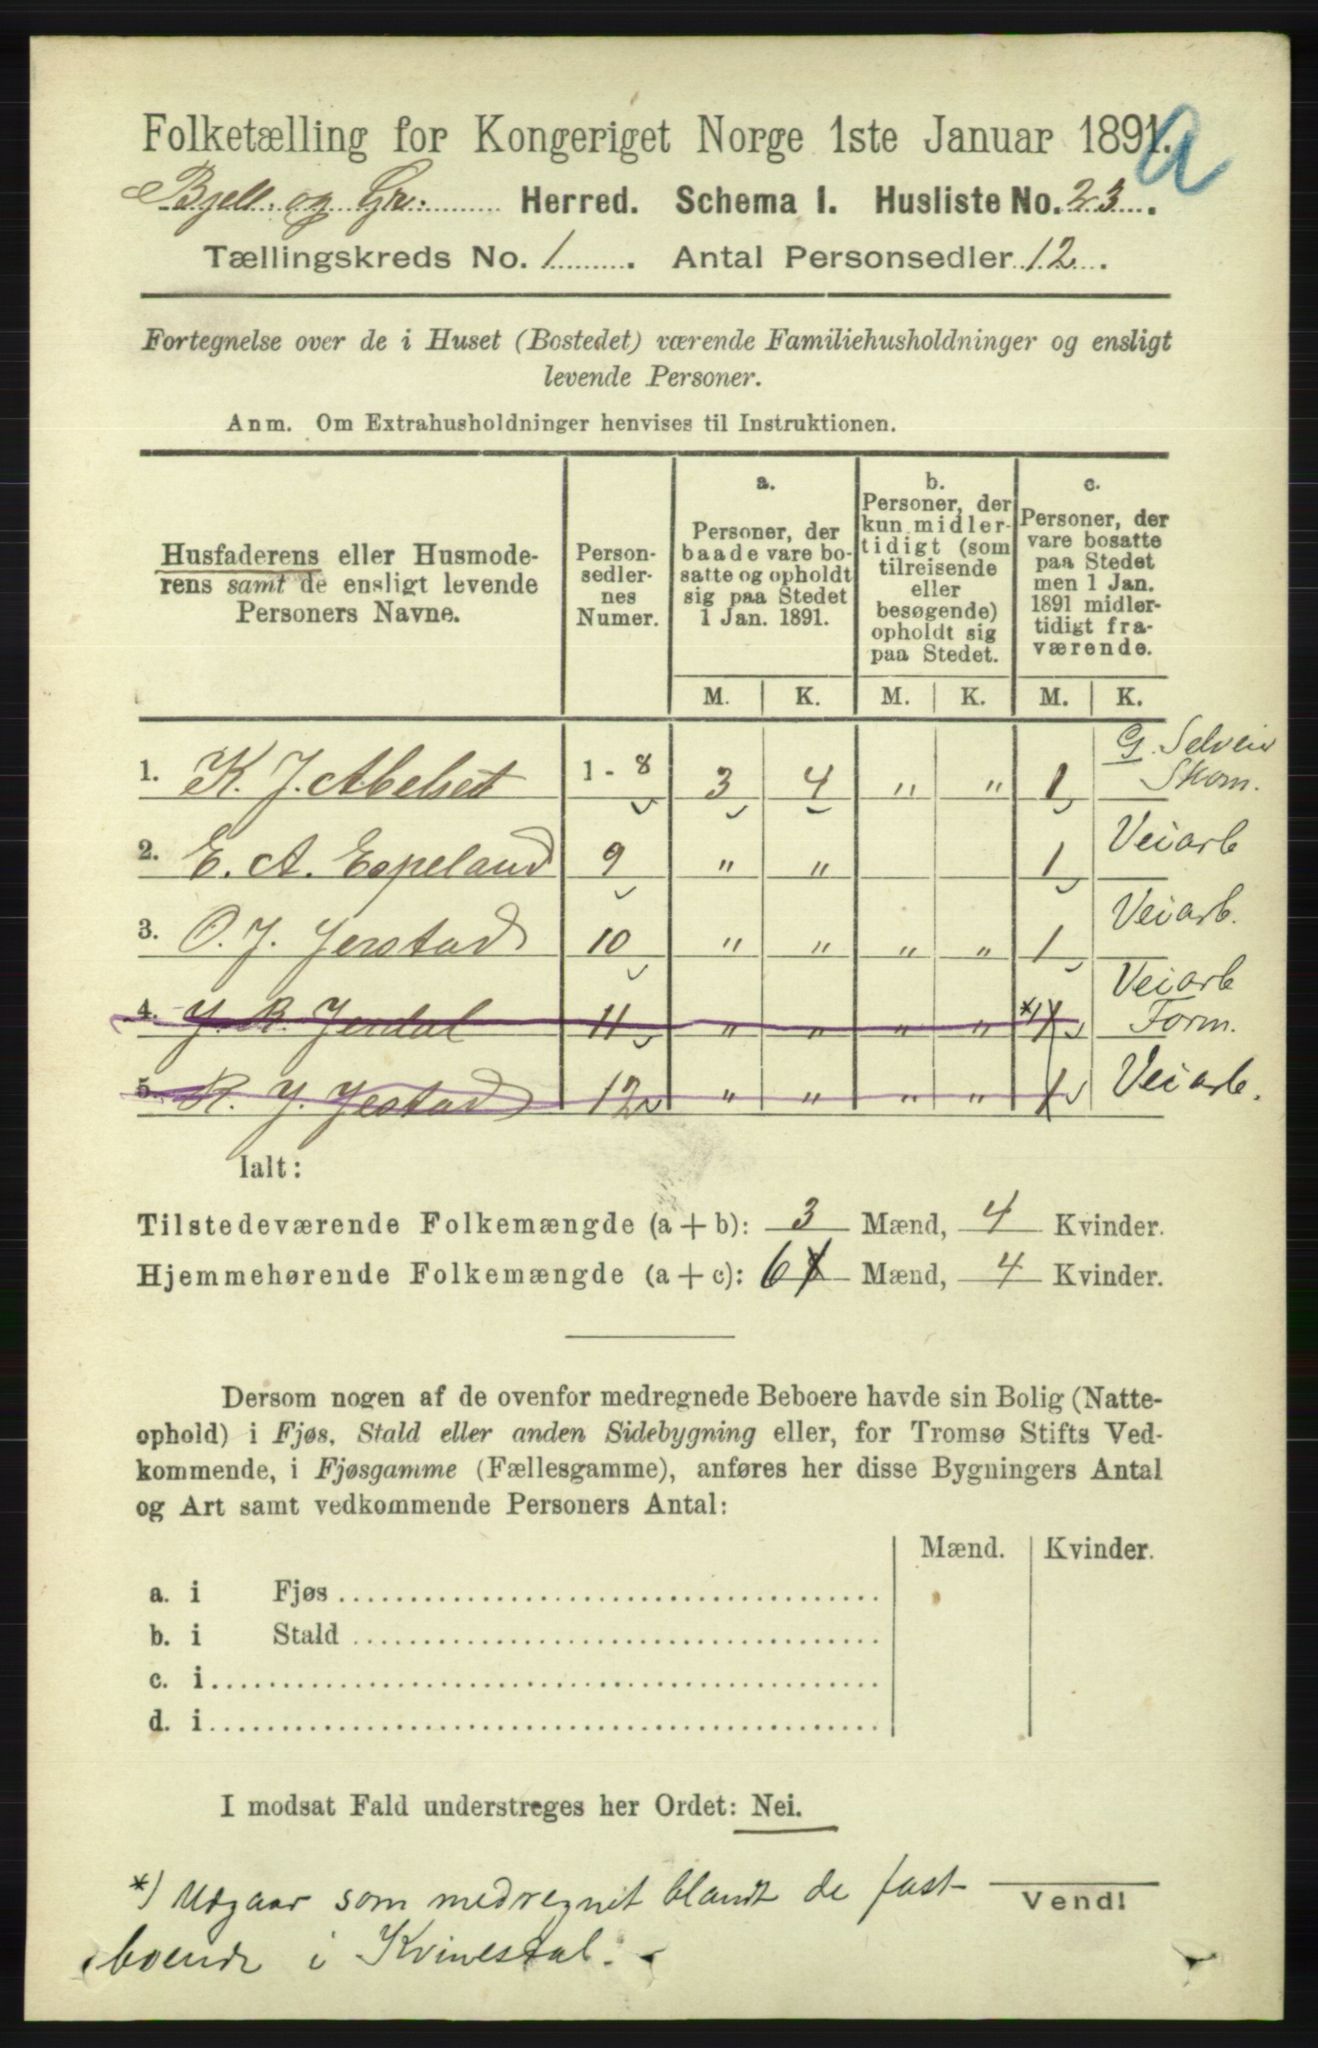 Folketælling for Kongeriget Norge 1ste Januar 1891. a
Bjell. og Gr. Herred. Schema I. Husliste No. 23.
Tællingskreds No. 1. Antal Personsedler 12.
Fortegnelse over de i Huset (Bostedet) værende Familiehusholdninger og ensligt
levende Personer.
Anm. Om Extrahusholdninger henvises til Instruktionen.
Husfaderens eller Husmode-
rens samt de ensligt levende
Personers Navne.
Person-
sedler-
nes
Numer.
a.
Personer, der
baade vare bo-
satte og opholdt
sig paa Stedet
1 Jan. 1891.
b.
Personer, der
kun midler-
tidigt (som
tilreisende
eller
besøgende)
opholdt sig
paa Stedet.
c.
Personer, der
vare bosatte
paa Stedet
men 1 Jan.
1891 midler-
tidigt fra-
værende.
M. K. M. K. M. K.
1. K. J. Abelset 1 - 8 3 4 " " 1 G. Selveier
Skom.
2. E. A. Espeland 9 " " 1 Veiarb
3. O. J. Jerstad 10 " " " " 1 Veiarb.
4. Jerdal 11 " " " " *) 1 Veiarb
Form.
5. R. J. Jestad 12 " " " " 1 Veiarb.
Ialt:
Tilstedeværende Folkemængde (a + b): 3 Mænd, 4 Kvinder.
Hjemmehørende Folkemængde (a + c): 6 Mænd, 4 Kvinder.
Dersom nogen af de ovenfor medregnede Beboere havde sin Bolig (Natte-
ophold) i Fjøs, Stald eller anden Sidebygning eller, for Tromsø Stifts Ved-
kommende, i Fjøsgamme (Fællesgamme), anføres her disse Bygningers Antal
og Art samt vedkommende Personers Antal:
Mænd. Kvinder.
a. i Fjøs
b. i Stald
c. i
d. i
I modsat Fald understreges her Ordet: Nei.
*) Udgaar som medregnet blandt de fast-
boende i Kvinesdal.
Vend!